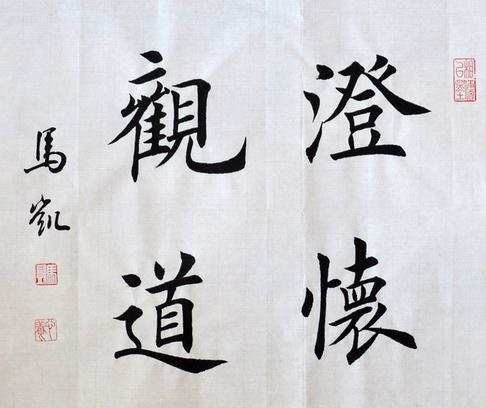 澄懷
觀道
馬凱